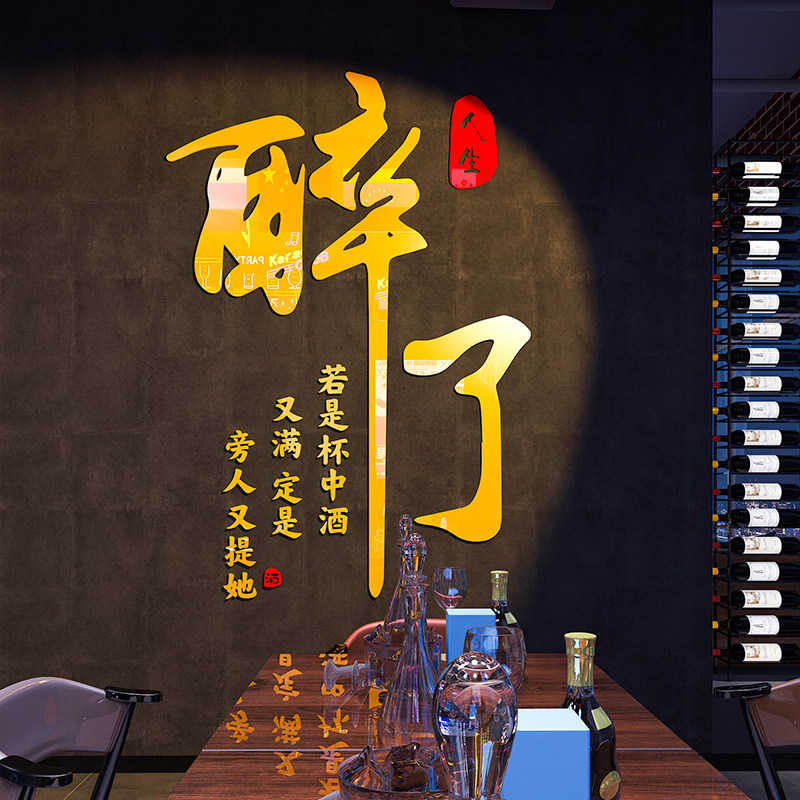 醉了
人生
若是杯中酒
又满定是
旁人又提她
酒
PARTY
Kara